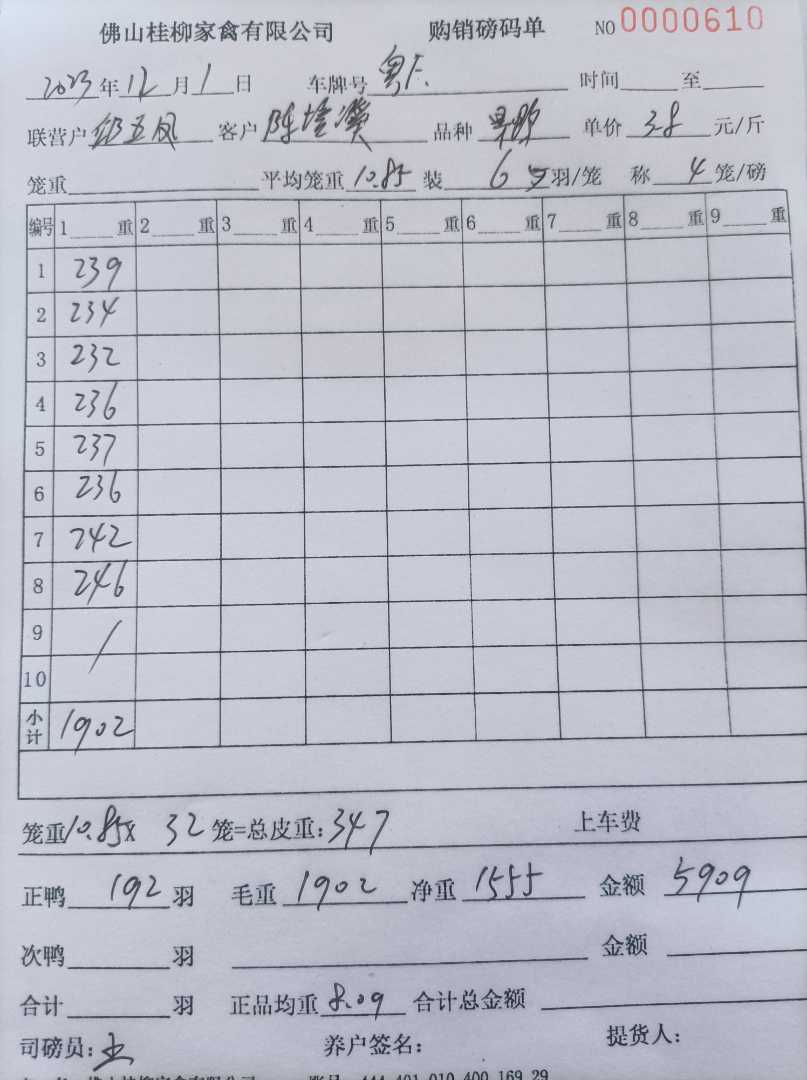 佛山桂柳家禽有限公司 购销磅码单 NO 0000610
2023年12月1日 车牌号 粤 时间 至
联营户 五凤 客户 陈 品种 单价 3.8 元/斤
笼重 平均笼重 10.85 装 6 羽/笼 称 4 笼/磅
编号 1 重 2 重 3 重 4 重 5 重 6 重 7 重 8 重 9 重
1 239
2 234
3 232
4 236
5 237
6 236
7 242
8 246
9 /
10
小计 1902
笼重10.85x 32 笼=总皮重:347 上车费
正鸭 192 羽 毛重 1902 净重 1555 金额 5909
次鸭 羽 金额
合计 羽 正品均重 8.09 合计总金额
司磅员: 养户签名: 提货人:
佛山桂柳家禽有限公司 444 401 010 400 169 29